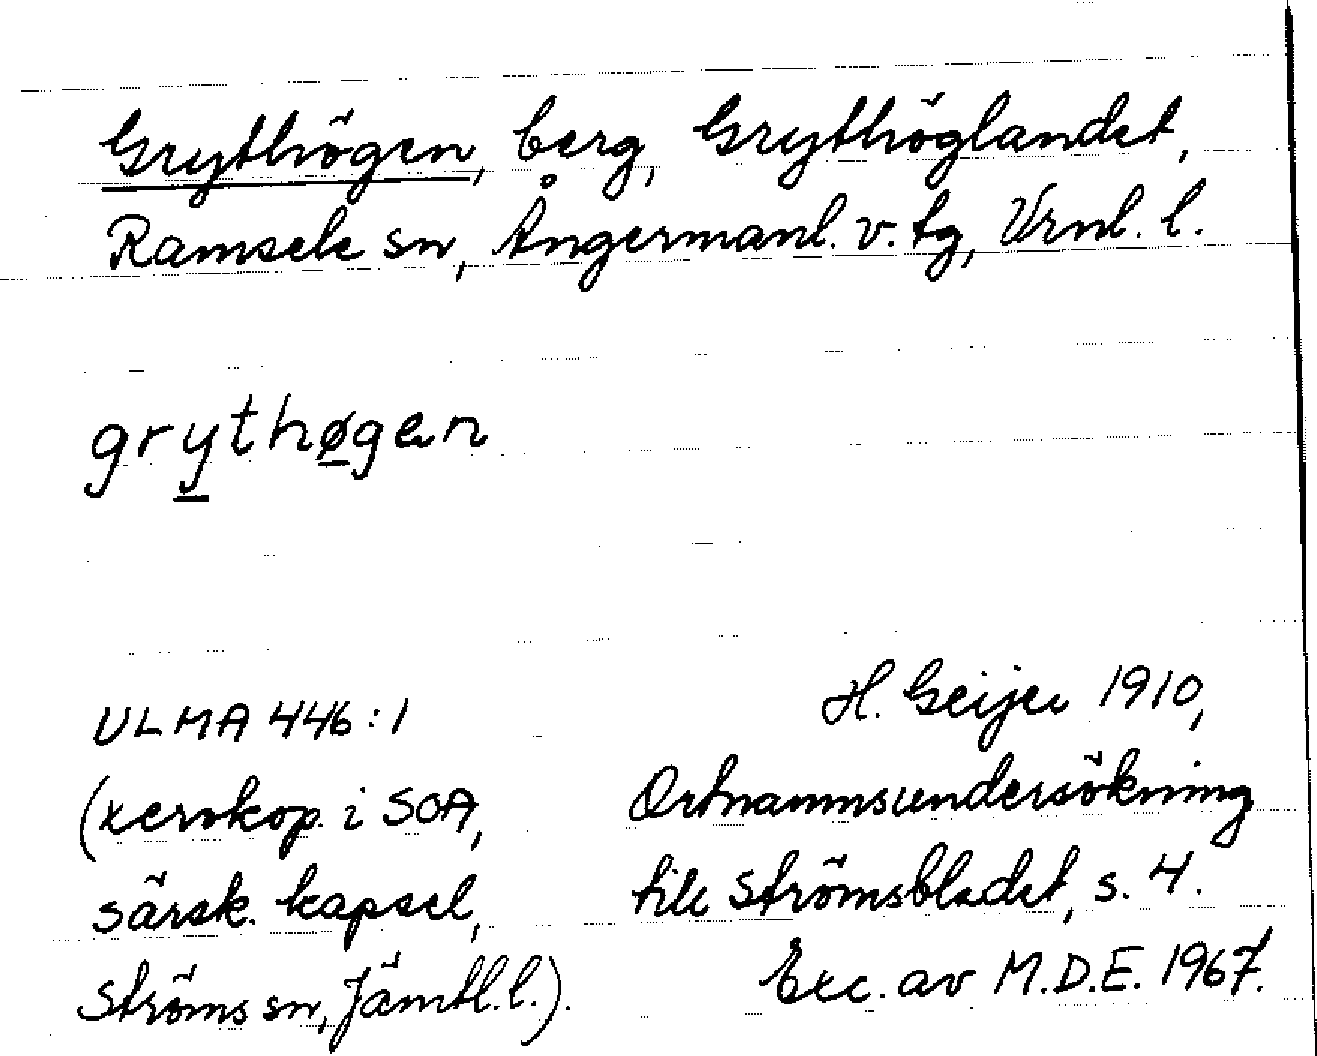 Grythögen, berg, Grythöglandet,
Ramsele sn, Ångermanl. v. tg, Vrnl. l.
grythøgen
ULMA 446:1
(xerokop. i SOA,
särsk. kapsel,
Ströms sn, Jämtl. l.).
H. Geijer 1910,
Ortnamnsundersökning
till Strömsbladet, s. 4.
Exc. av M.D.E. 1967.